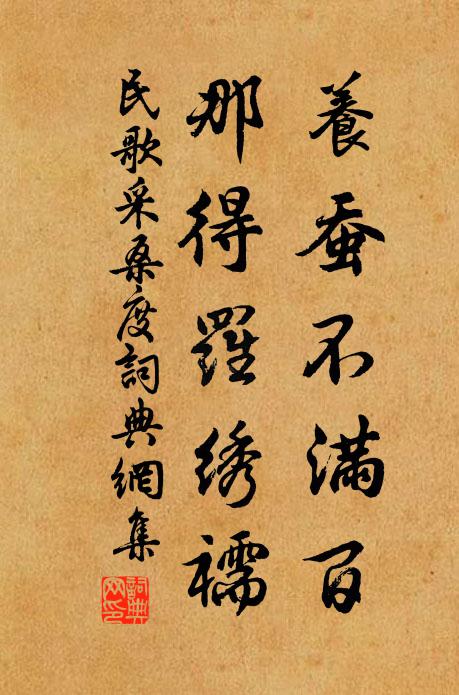 養蚕不满百
那得羅绣襦
民歌采桑度詞典網集
詞典
网印